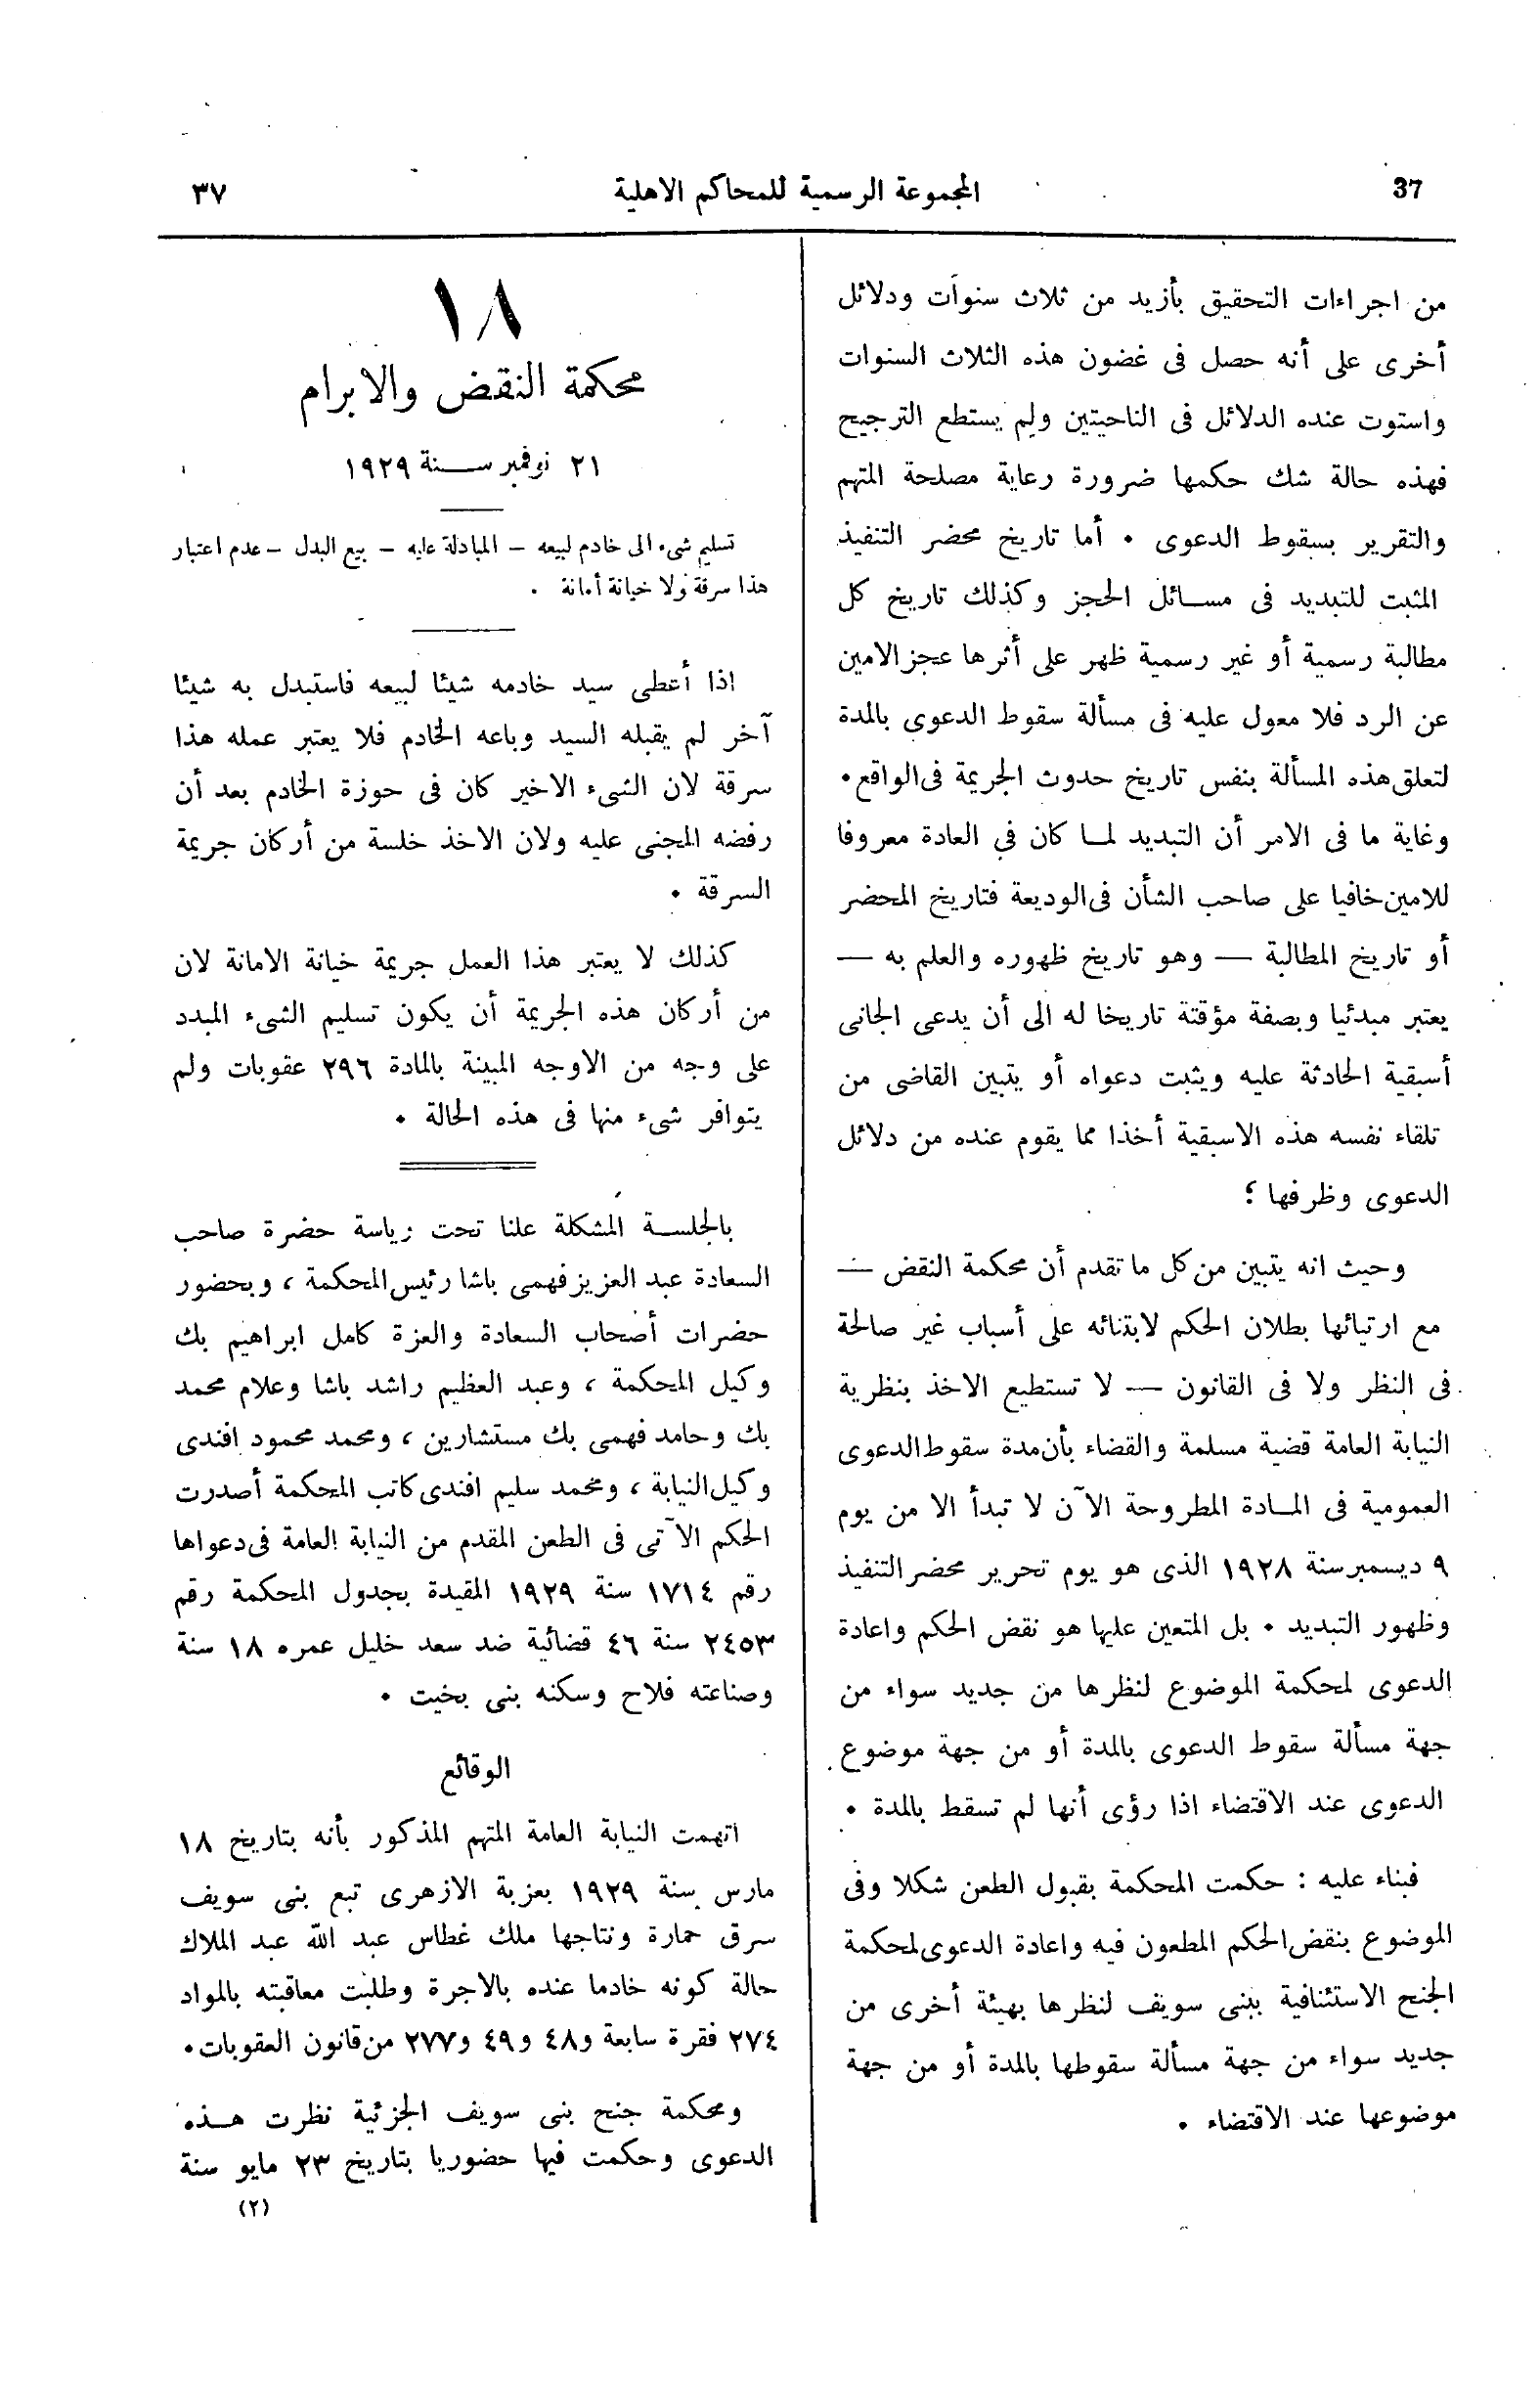 37
المجموعة الرسمية للمحاكم الاهلية
٣٧
من اجراءات التحقيق بأزيد من ثلاث سنوات ودلائل
أخرى على أنه حصل فى غضون هذه الثلاث السنوات
واستوت عنده الدلائل فى الناحيتين ولم يستطع الترجيح
فهذه حالة شك حكمها ضرورة رعاية مصلحة المتهم
والتقرير بسقوط الدعوى . أما تاريخ محضر التنفيذ
المثبت للتبديد فى مسائل الحجز وكذلك تاريخ كل
مطالبة رسمية أو غير رسمية ظهر على أثرها عجز الامين
عن الرد فلا معول عليه فى مسألة سقوط الدعوى بالمدة
لتعلق هذه المسألة بنفس تاريخ حدوث الجريمة فى الواقع .
وغاية ما فى الامر أن التبديد لما كان في العادة معروفا
للامين خافيا على صاحب الشأن فى الوديعة فتاريخ المحضر
أو تاريخ المطالبة — وهو تاريخ ظهوره والعلم به —
يعتبر مبدئيا وبصفة مؤقتة تاريخا له الى أن يدعى الجانى
أسبقية الحادثة عليه ويثبت دعواه أو يتبين القاضى من
تلقاء نفسه هذه الاسبقية أخذا مما يقوم عنده من دلائل
الدعوى وظرفها ؛
وحيث انه يتبين من كل ما تقدم أن محكمة النقض —
مع ارتيائها بطلان الحكم لابتنائه على أسباب غير صالحة
فى النظر ولا فى القانون — لا تستطيع الاخذ بنظرية
النيابة العامة قضية مسلمة والقضاء بأن مدة سقوط الدعوى
العمومية فى المادة المطروحة الآن لا تبدأ الا من يوم
٩ ديسمبر سنة ١٩٢٨ الذى هو يوم تحرير محضر التنفيذ
وظهور التبديد . بل المتعين عليها هو نقض الحكم واعادة
الدعوى لمحكمة الموضوع لنظرها من جديد سواء من
جهة مسألة سقوط الدعوى بالمدة أو من جهة موضوع
الدعوى عند الاقتضاء اذا رؤى أنها لم تسقط بالمدة .
فبناء عليه : حكمت المحكمة بقبول الطعن شكلا وفى
الموضوع بنقض الحكم المطعون فيه واعادة الدعوى لمحكمة
الجنح الاستئنافية ببنى سويف لنظرها بهيئة أخرى من
جديد سواء من جهة مسألة سقوطها بالمدة أو من جهة
موضوعها عند الاقتضاء .
١٨
محكمة النقض والابرام
٢١ نوفمبر سنة ١٩٢٩
تسليم شىء الى خادم لبيعه – المبادلة عليه – بيع البدل – عدم اعتبار
هذا سرقة ولا خيانة أمانة .
اذا أعطى سيد خادمه شيئا لبيعه فاستبدل به شيئا
آخر لم يقبله السيد وباعه الخادم فلا يعتبر عمله هذا
سرقة لان الشىء الاخير كان فى حوزة الخادم بعد أن
رفضه المجنى عليه ولان الاخذ خلسة من أركان جريمة
السرقة .
كذلك لا يعتبر هذا العمل جريمة خيانة الامانة لان
من أركان هذه الجريمة أن يكون تسليم الشىء المبدد
على وجه من الاوجه المبينة بالمادة ٢٩٦ عقوبات ولم
يتوافر شىء منها فى هذه الحالة .
بالجلسة المشكلة علنا تحت رياسة حضرة صاحب
السعادة عبد العزيز فهمى باشا رئيس المحكمة ، وبحضور
حضرات أصحاب السعادة والعزة كامل ابراهيم بك
وكيل المحكمة ، وعبد العظيم راشد باشا وعلام محمد
بك وحامد فهمى بك مستشارين ، ومحمد محمود افندى
وكيل النيابة ، ومحمد سليم افندى كاتب المحكمة أصدرت
الحكم الآتى فى الطعن المقدم من النيابة العامة فى دعواها
رقم ١٧١٤ سنة ١٩٢٩ المقيدة بجدول المحكمة رقم
٢٤٥٣ سنة ٤٦ قضائية ضد سعد خليل عمره ١٨ سنة
وصناعته فلاح وسكنه بنى بخيت .
الوقائع
اتهمت النيابة العامة المتهم المذكور بأنه بتاريخ ١٨
مارس سنة ١٩٢٩ بعزبة الازهرى تبع بنى سويف
سرق حمارة ونتاجها ملك غطاس عبد الله عبد الملاك
حالة كونه خادما عنده بالاجرة وطلبت معاقبته بالمواد
٢٧٤ فقرة سابعة و٤٨ و٤٩ و٢٧٧ من قانون العقوبات .
ومحكمة جنح بنى سويف الجزئية نظرت هذه
الدعوى وحكمت فيها حضوريا بتاريخ ٢٣ مايو سنة
(٢)